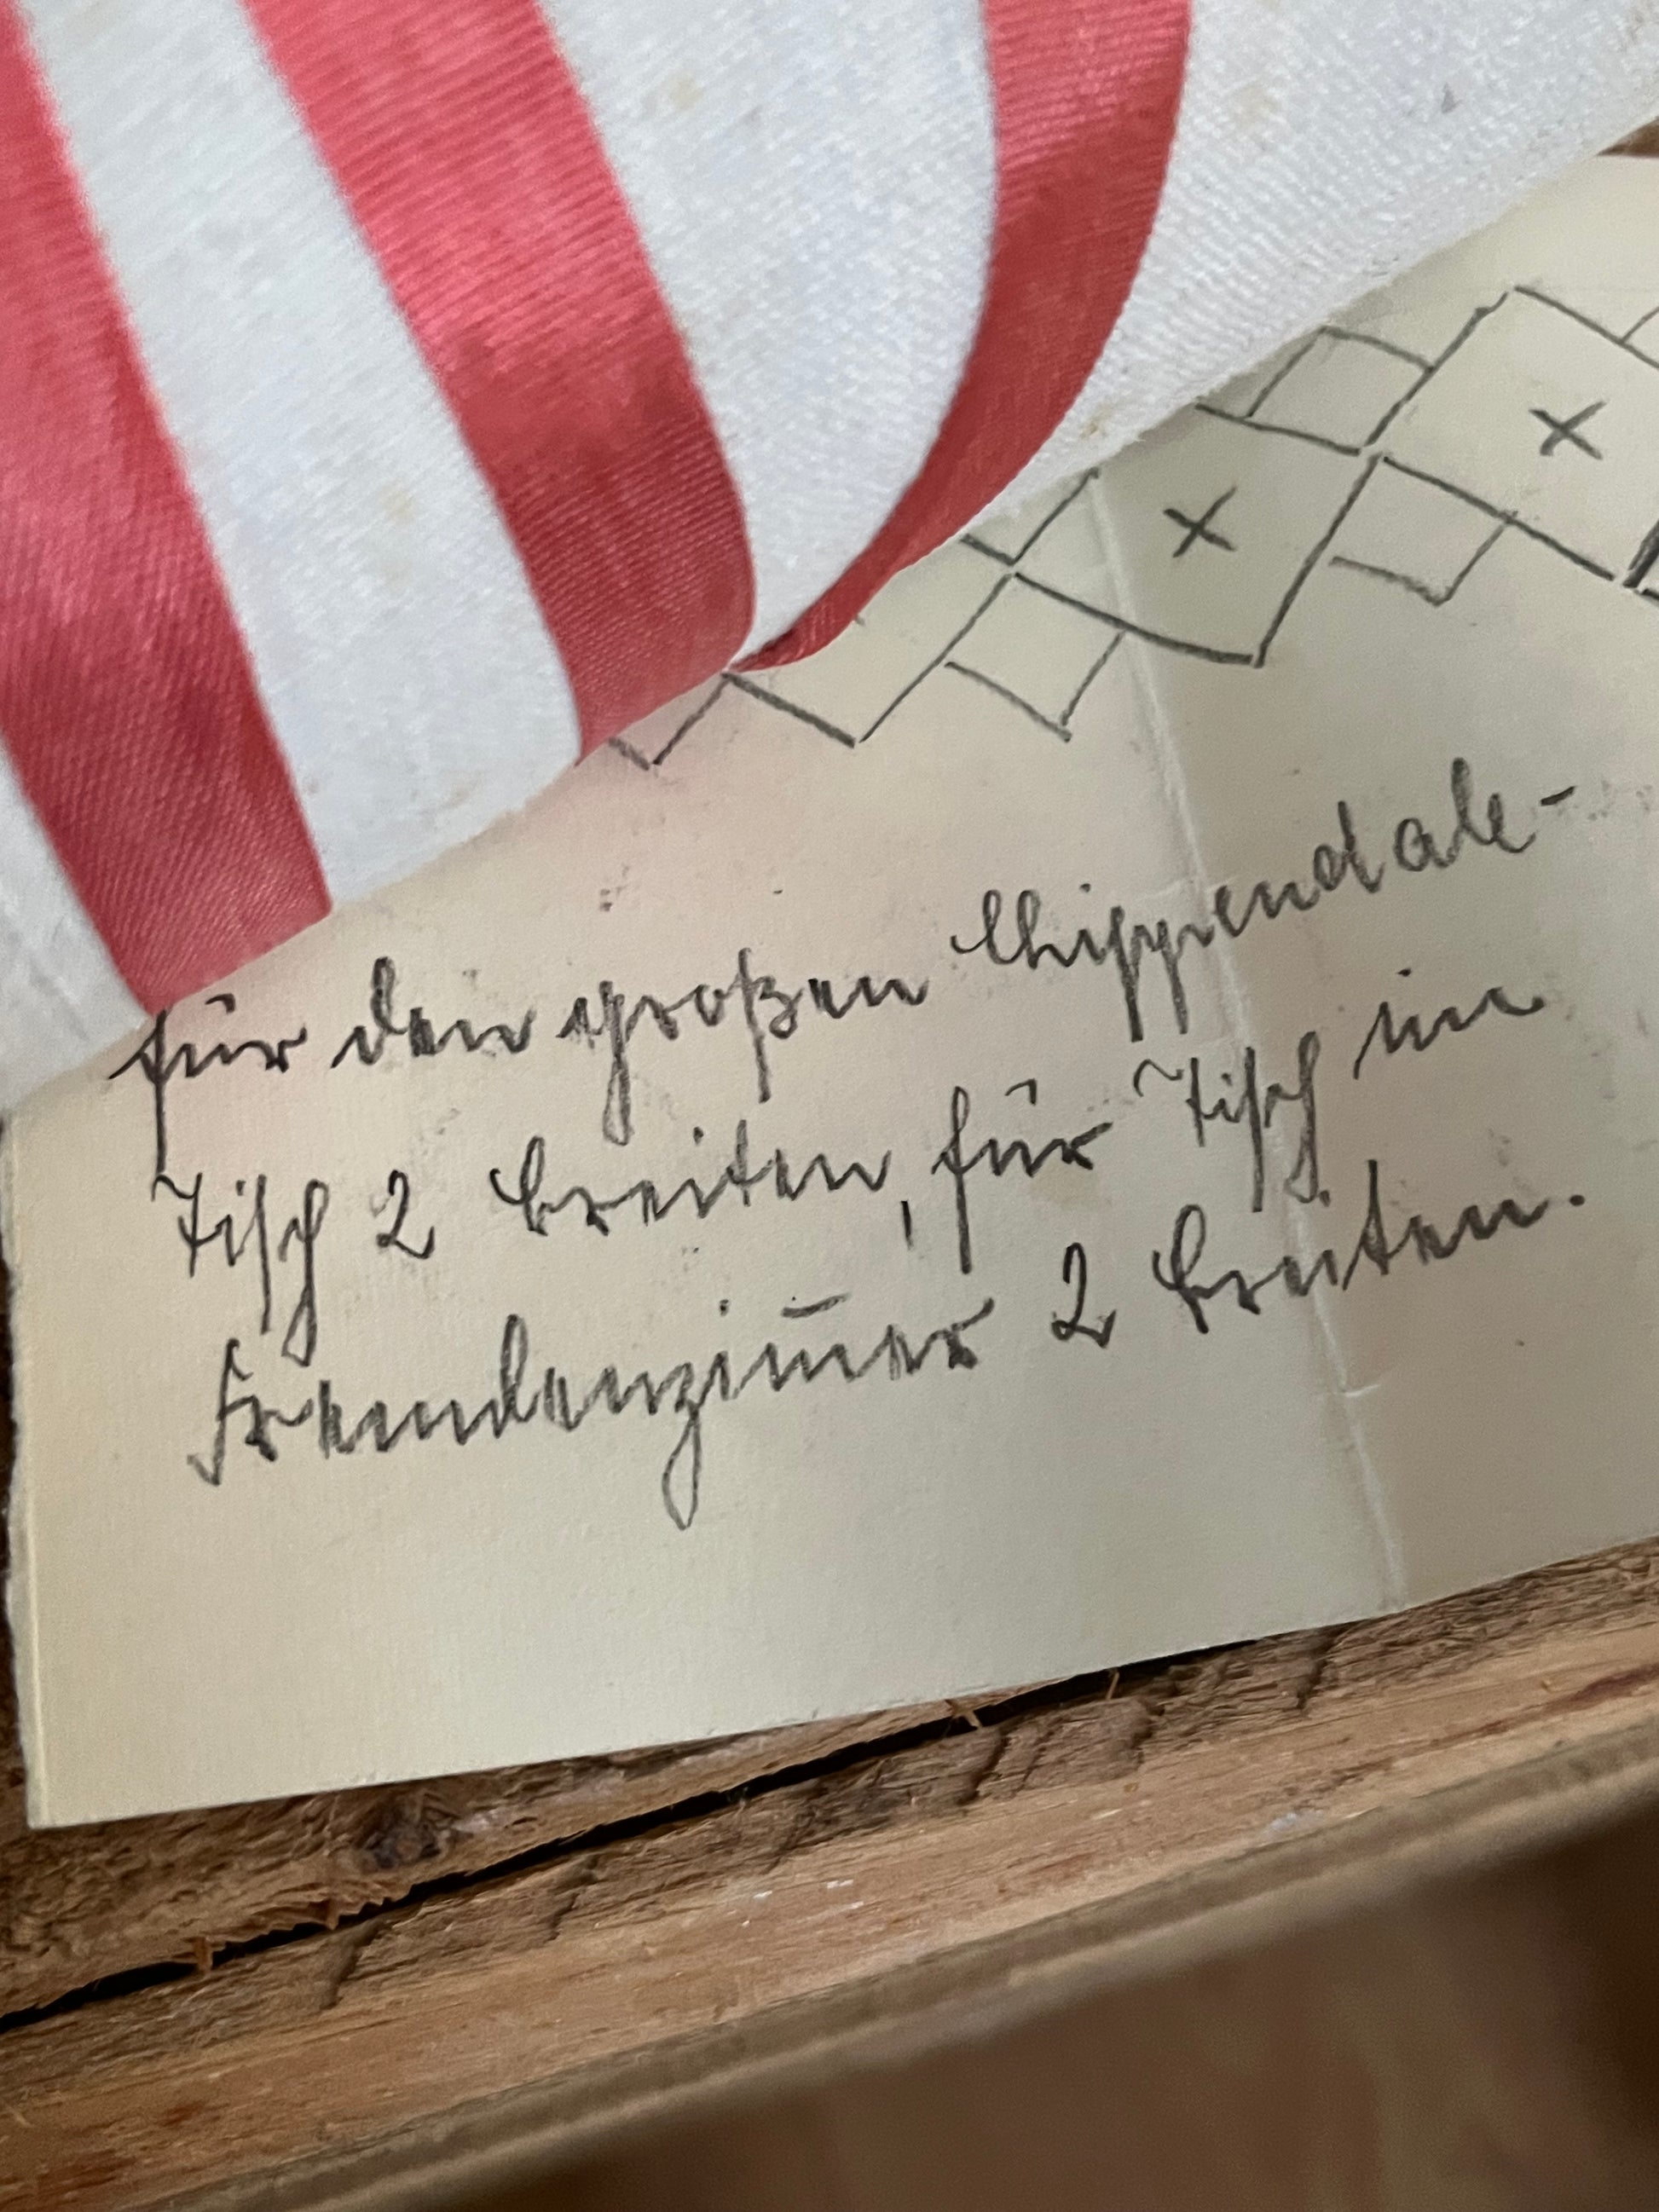 für den großen Chippendale-
Tisch 2 Breiten, für Tisch im
Fremdenzim̅er 2 Breiten.